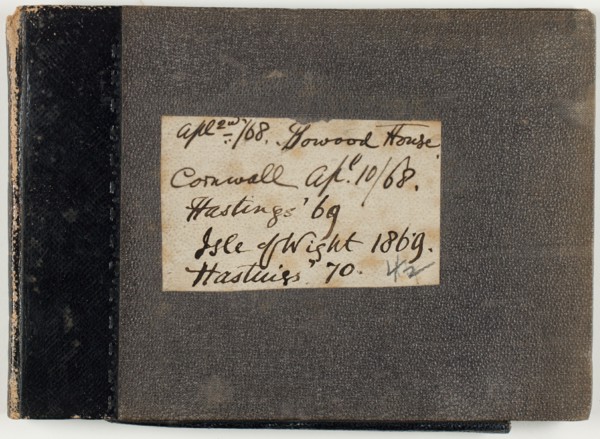 Apl 2nd/68. Bowood House
Cornwall Apl. 10/68.
Hastings '69
Isle of Wight 1869.
Hastings '70. 42